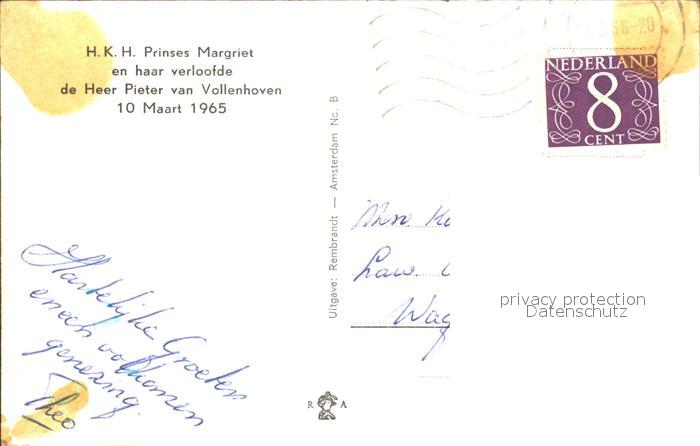 H.K.H. Prinses Margriet
en haar verloofde
de Heer Pieter van Vollenhoven
10 Maart 1965
Hartelijke Groeten
en een volkomen
genezing.
Theo
Uitgave: Rembrandt — Amsterdam No. B
R A
6-20
NEDERLAND
8
CENT
Mevr. Ko
Law.
Wag
privacy protection
Datenschutz